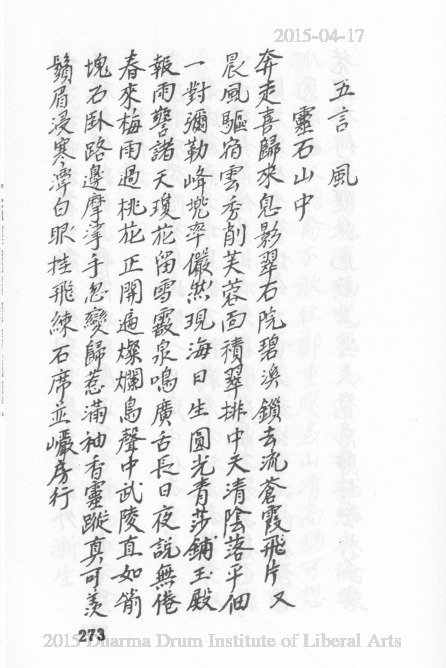 2015-04-17
五言風
靈石山中
奔走喜歸來息影翠右院碧溪鎖去流蒼霞飛片又
晨風驅宿雲秀削芙蓉面積翠排中天清陰落平佃
一對彌勒峰兜率儼然現海日生圓光青莎鋪玉殿
報雨讐諸天瓊花留雪霰泉鳴廣舌長日夜說無倦
春來梅雨過桃花正開遍燦爛鳥聲中武陵直如箭
塊石臥路邊摩挲手忽變歸惹滿袖香靈蹤真可羨
鬚眉浸寒潭白眼挂飛練石席並巉房行
273
2015 Dharma Drum Institute of Liberal Arts